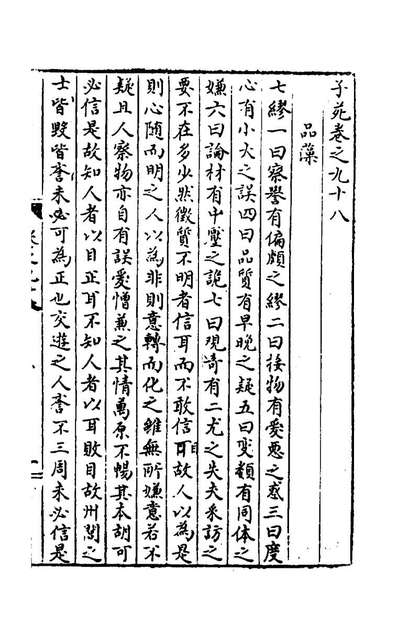 子苑卷之九十八
品藻
七繆一曰察譽有偏頗之繆二曰接物有愛惡之惑三曰度
心有小大之誤四曰品質有早晚之疑五曰變類有同体之
嫌六曰論材有申壓之詭七曰觀奇有二尤之失夫采訪之
要不在多少然徵質不明者信耳而不敢信目故人以為是
則心隨而明之人以為非則意轉而化之雖無所嫌意若不
疑且人察物亦自有誤愛憎兼之其情萬原不暢其本胡可
必信是故知人者以目正耳不知人者以耳敗目故州閭之
士皆毀皆譽未必可為正也交遊之人譽不三周未必信是